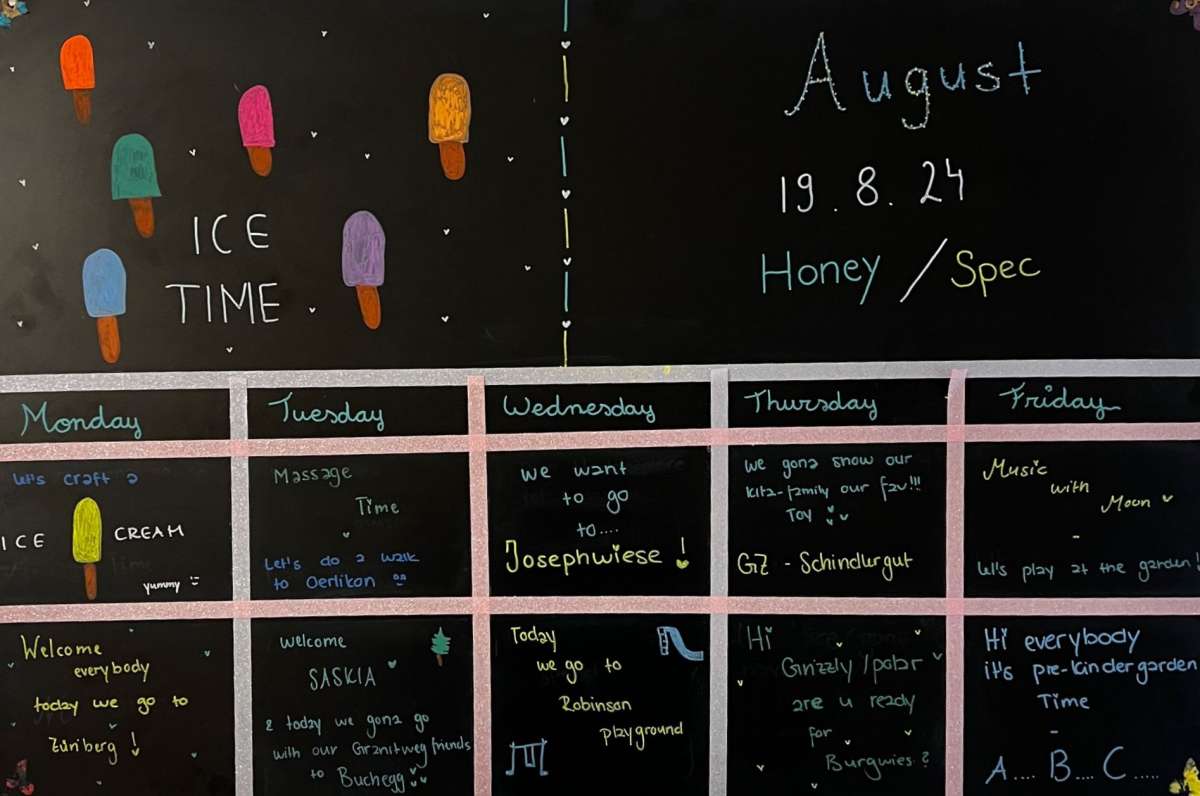 ICE
TIME
August
19.8.24
Honey / Spec
Monday
Tuesday
Wednesday
Thursday
Friday
let's craft a
ICE CREAM
yummy
Massage
Time
Let's do a walk
to Oerlikon
we want
to go
to....
Josephwiese !
we gona show our
kita-family our fav!!!
Toy
GZ - Schindlergut
Music
with
Moon
-
let's play at the garden!
Welcome
everybody
today we go to
Züriberg !
welcome
SASKIA
& today we gona go
with our Granitweg friends
to Buchegg
Today
we go to
Robinson
playground
Hi
Grizzly/polar
are u ready
for
Burgwies ?
Hi everybody
it's pre-kindergarden
Time
-
A.... B.... C.....